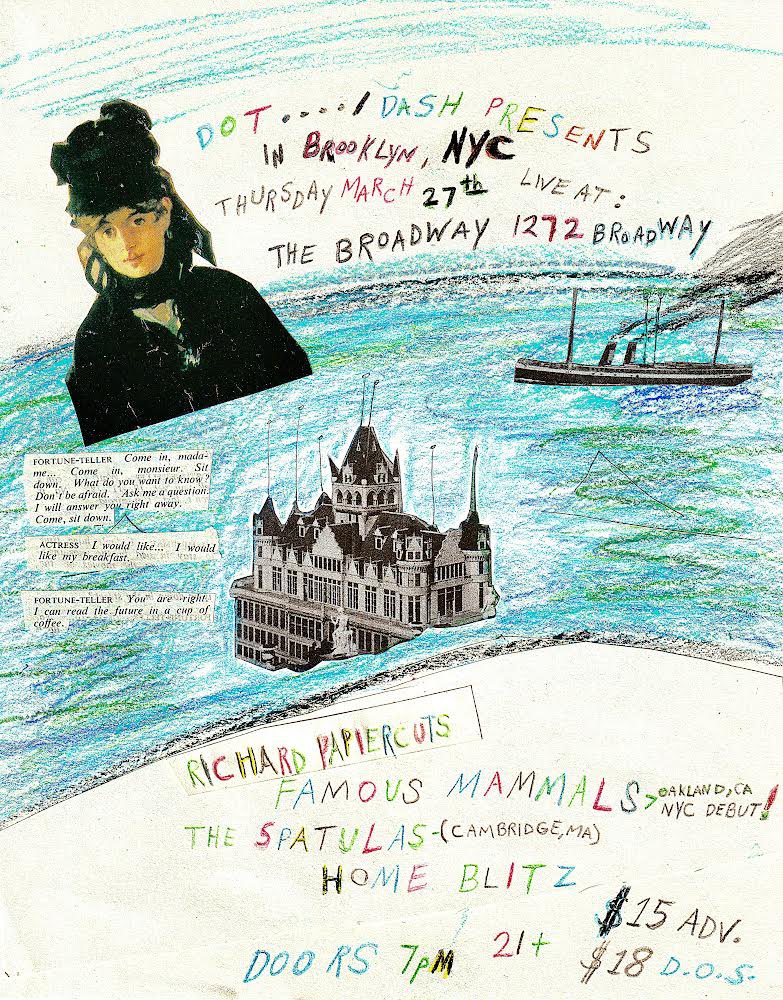 DOT..../ DASH PRESENTS
IN BROOKLYN, NYC
THURSDAY MARCH 27th LIVE AT:
THE BROADWAY 1272 BROADWAY
FORTUNE-TELLER Come in, mada-
me... Come in, monsieur. Sit
down. What do you want to know?
Don't be afraid. Ask me a question.
I will answer you right away.
Come, sit down.
ACTRESS I would like... I would
like my breakfast.
FORTUNE-TELLER You are right.
I can read the future in a cup of
coffee.
RICHARD PAPIERCUTS
FAMOUS MAMMALS > OAKLAND, CA
NYC DEBUT!
THE SPATULAS-(CAMBRIDGE, MA)
HOME BLITZ
$15 ADV.
DOORS 7pM 21+ $18 D.O.S.